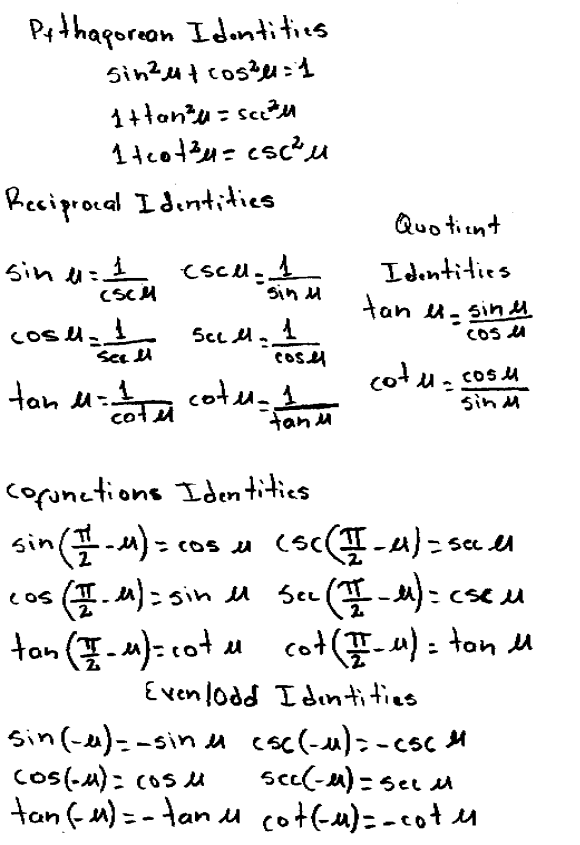 Pythagorean Identities
sin²u + cos²u = 1
1 + tan²u = sec²u
1 + cot²u = csc²u
Reciprocal Identities
sin u = 1/csc u   csc u = 1/sin u
cos u = 1/sec u   sec u = 1/cos u
tan u = 1/cot u   cot u = 1/tan u
Quotient
Identities
tan u = sin u/cos u
cot u = cos u/sin u
Cofunctions Identities
sin(π/2 - u) = cos u   csc(π/2 - u) = sec u
cos(π/2 - u) = sin u   sec(π/2 - u) = csc u
tan(π/2 - u) = cot u   cot(π/2 - u) = tan u
Even/odd Identities
sin(-u) = -sin u   csc(-u) = -csc u
cos(-u) = cos u   sec(-u) = sec u
tan(-u) = -tan u   cot(-u) = -cot u